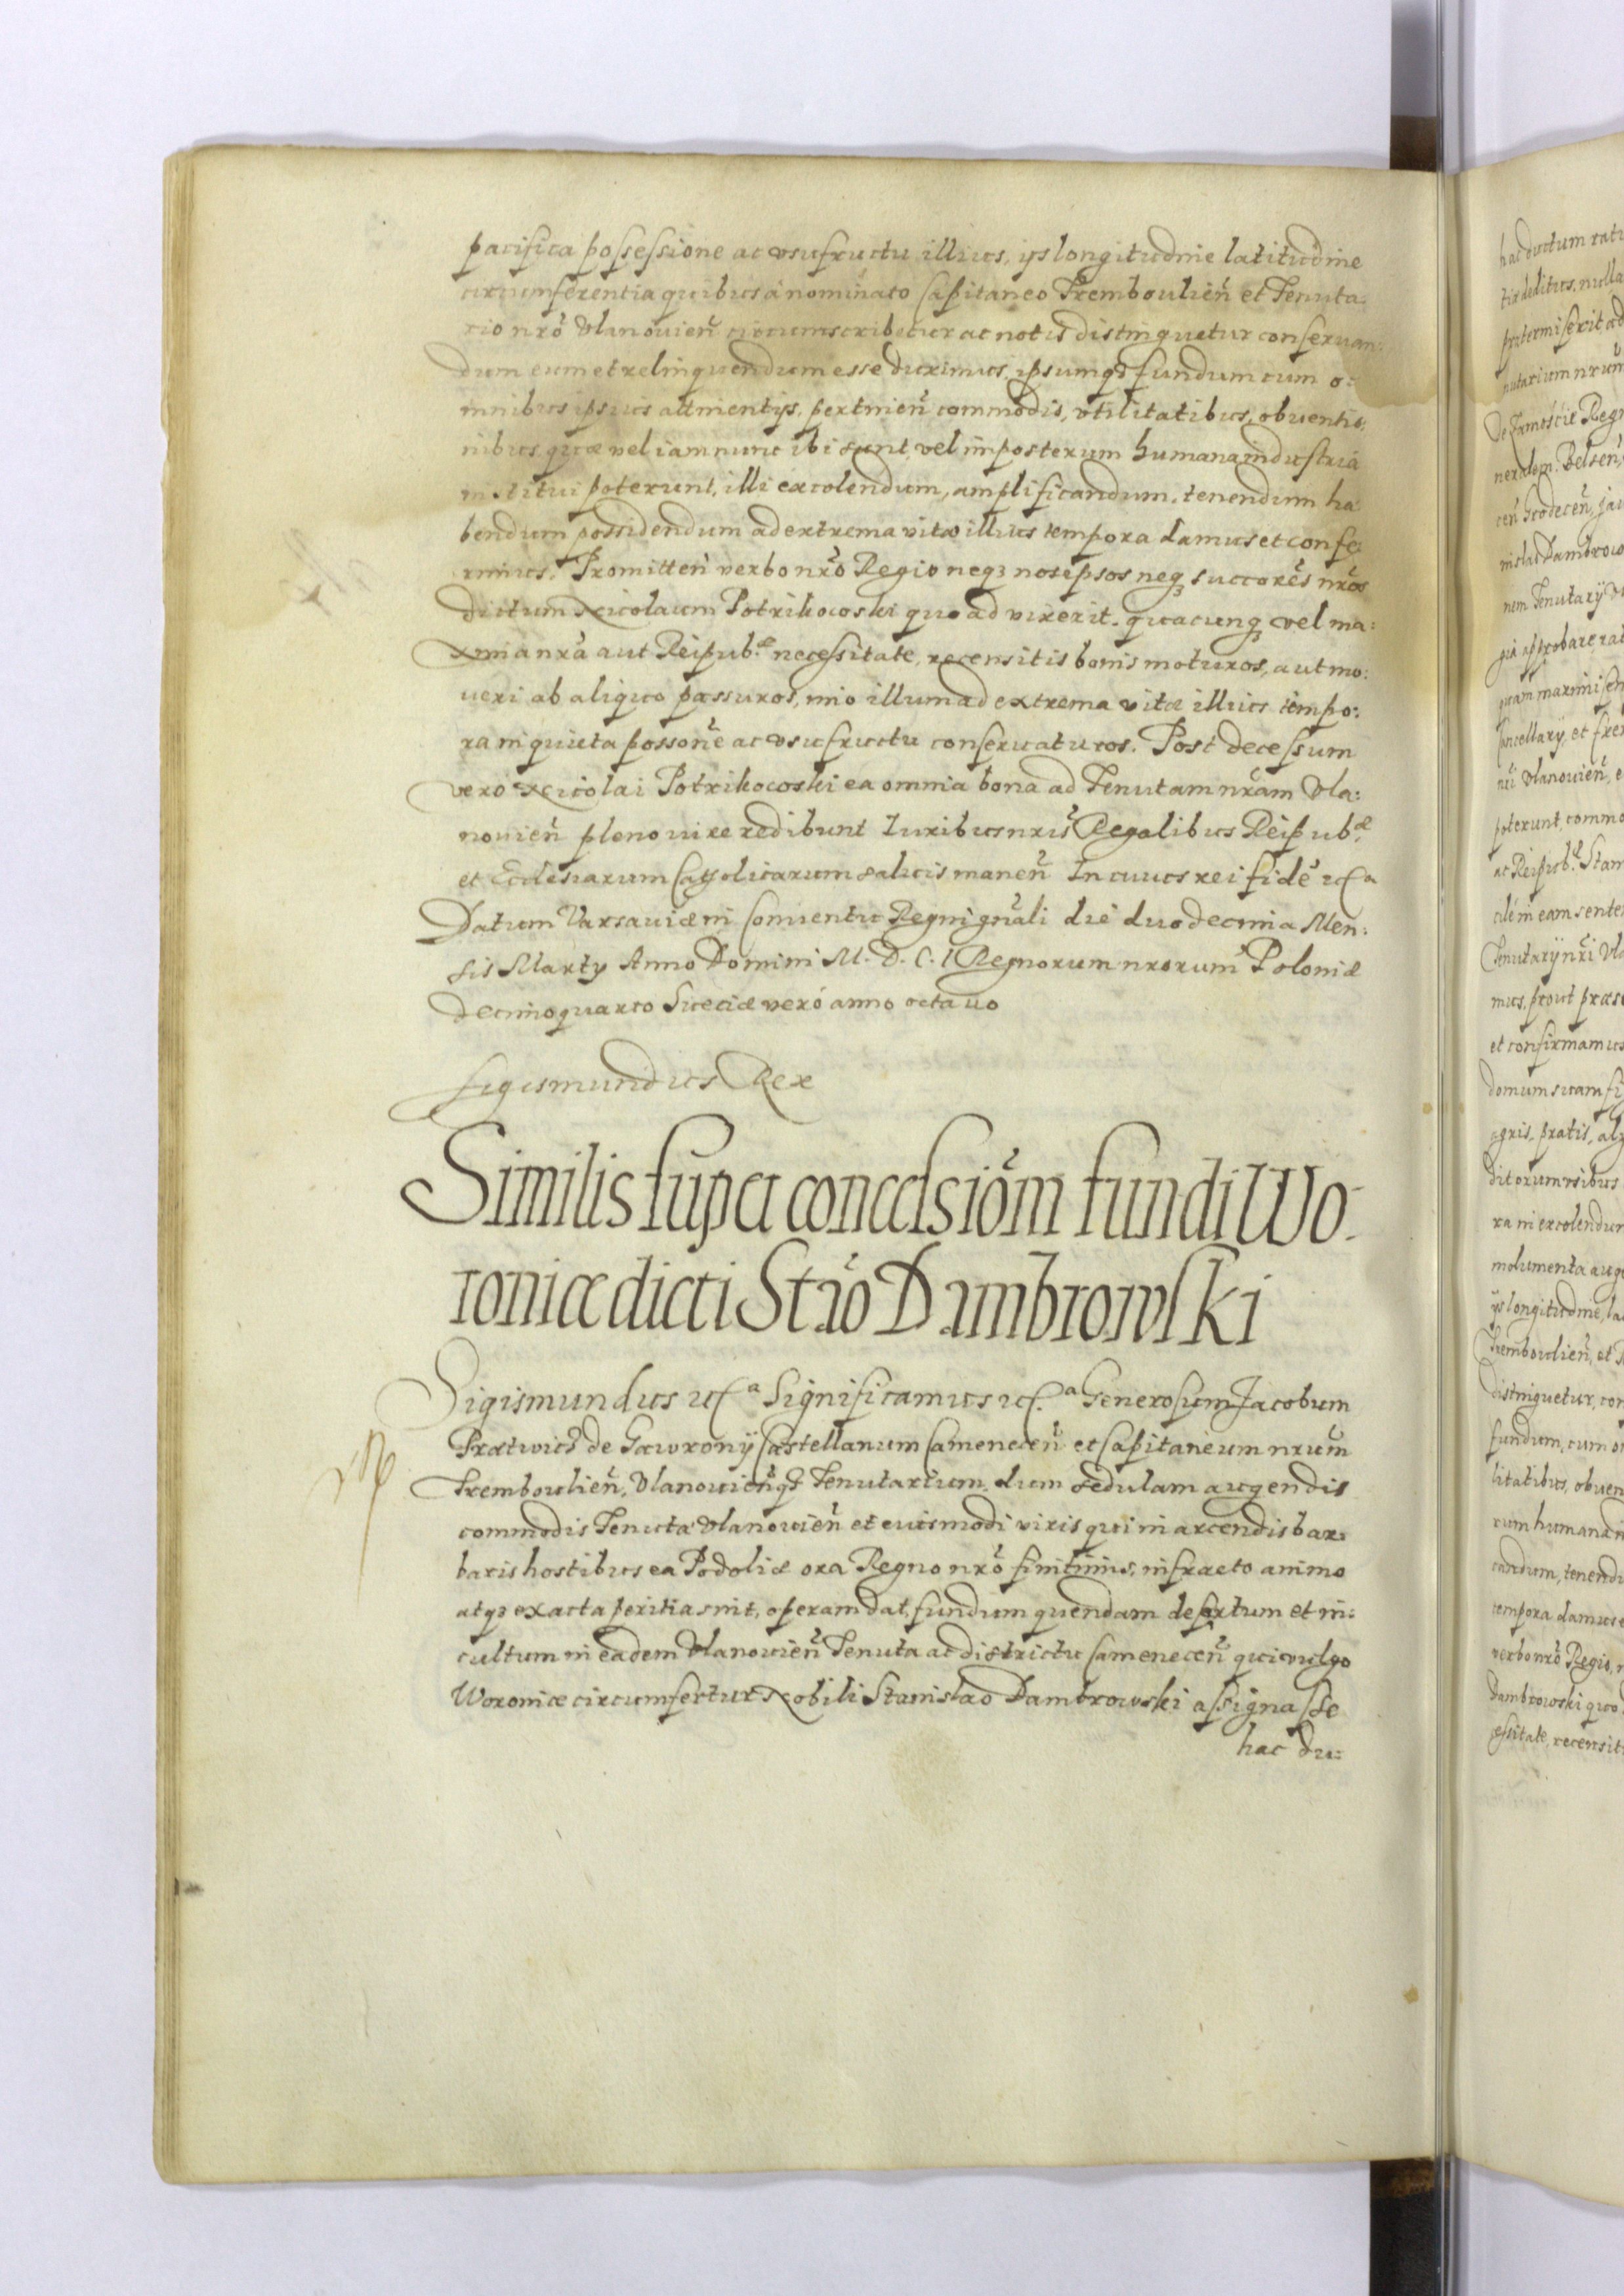 pacifica possessione ac vsufructu illius, ijs longitudine latitudine
circumferentia quibus a nominato Capitaneo Tremboulien̄ et Tenuta:
rio nrō Vlanouien̄ circumscribetur ac notis distinguetur conseruan:
dum eum et relinquendum esse duximus, ipsumq3 fundum cum o:
mnibus ipsius attinentijs, pertinen̄ commodis, vtilitatibus, obuentio:
nibus quæ vel iam nunc ibi sunt, vel imposterum humana industria
institui poterunt, illi excolendum, amplificandum, tenendum ha
bendum possidendum ad extrema vitæ illius tempora damus et confe
rimus. Promitten̄ verbo nrō Regio neq3 nos ipsos neq3 succorēs nrōs
dictum Nicolaum Potrikowski quo ad vixerit, quacunq3 vel ma:
xima nrā aut Reipub.æ necessitate, recensitis bonis moturos, aut mo:
ueri ab aliquo passuros, imo illum ad extrema vitæ illius tempo:
ra in quieta possonē ac vsufructu conseruaturos. Post decessum
vero Nicolai Potrikowski ea omnia bona ad Tenutam nrām Vla:
nouien̄ pleno iure redibunt Iuribus nrīs Regalibus Reipub.æ
et Ecclesiarum Catholicarum saluis manen̄ In cuius rei fidē etc.a
Datum Varsauiæ in Conuentu Regni gnāli die duodecima Men:
sis Martij Anno Domini M. D. C. I Regnorum nrorum Poloniæ
decimoquarto Sueciæ vero anno octauo
Sigismundus Rex
Similis super concessiōm fundi Wo-
ronicæ dicti Stāo Dambrowski
Sigismundus etc.a Significamus etc.a Generosum Jacobum
Prætwicz de Gawrony Castellanum Camenecen̄ et Capitaneum nrūm
Tremboulien̄, Vlanouien̄q3 Tenutarium, dum sedulam augendis
commodis Tenutæ Vlanouien̄ et eiusmodi viris qui in arcendis bar:
baris hostibus ea Podoliæ ora Regno nrō finitimis, infracto animo
atq3 exacta peritia sint, operam dat, fundum quendam desertum et in:
cultum in eadem Vlanouien̄ Tenuta ac districtu Camenecen̄ qui vulgo
Woronicæ circumfertur Nobili Stanislao Dambrowski assignasse
hac du: